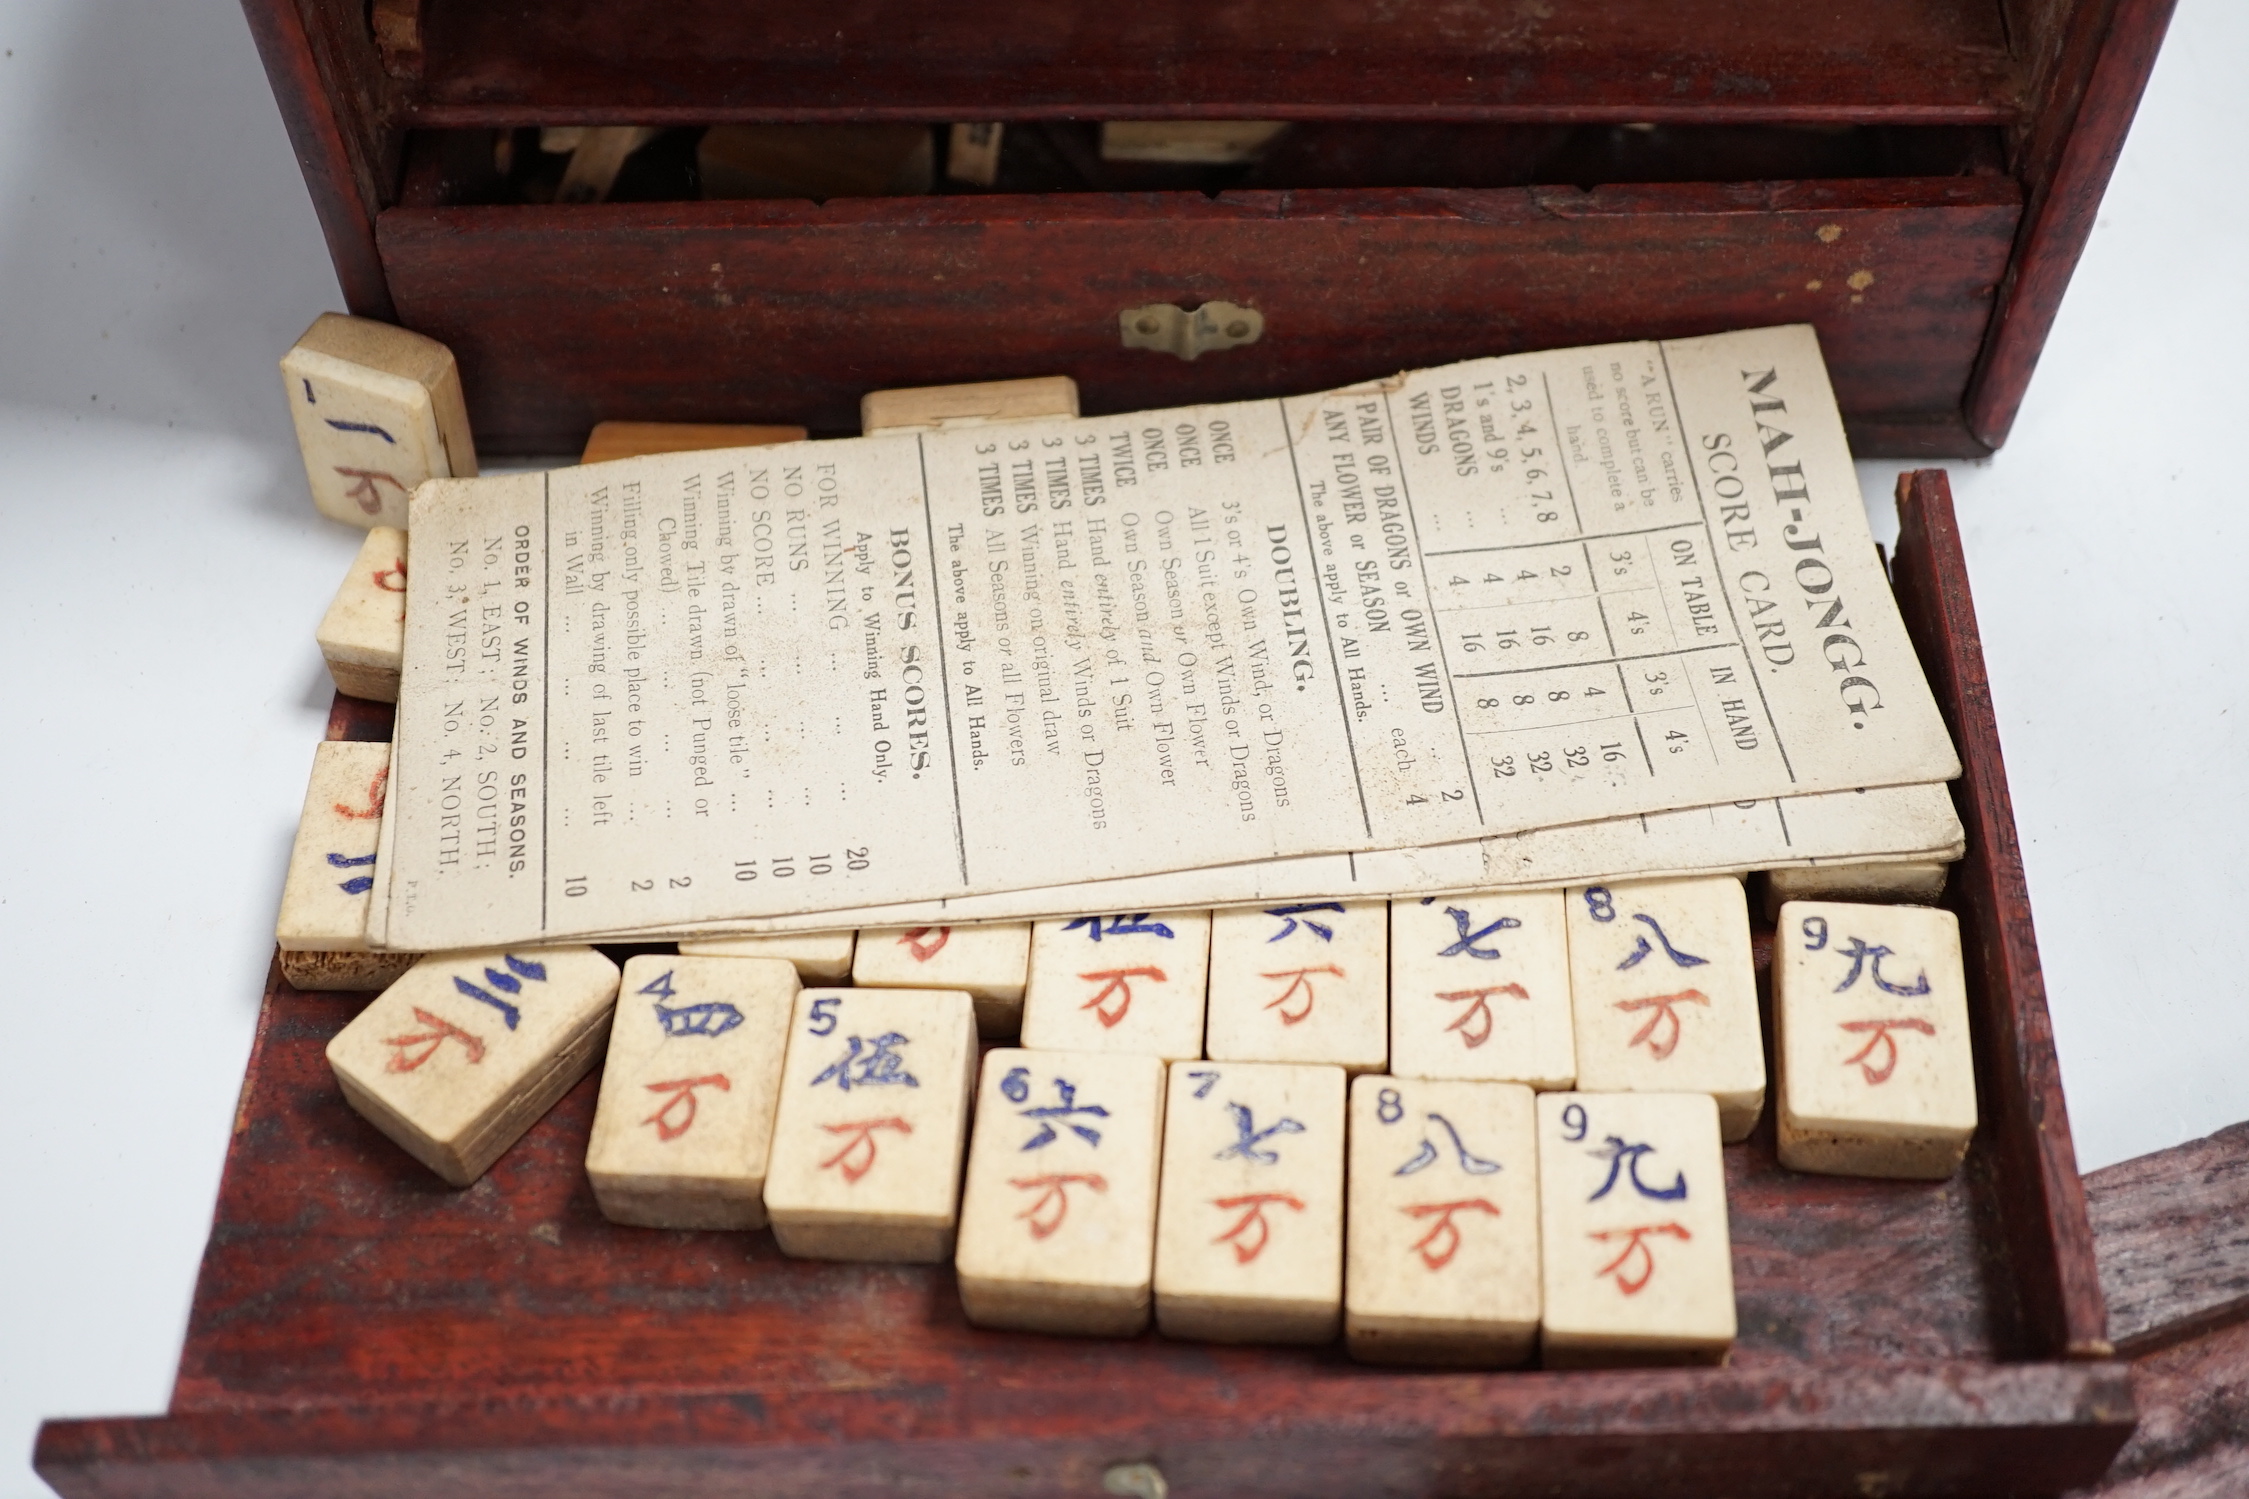 MAH-JONGG.
SCORE CARD.
"A RUN" carries
no score but can be
used to complete a
hand.
ON TABLE IN HAND
3's 4's 3's 4's
2, 3, 4, 5, 6, 7, 8 2 8 4 16
1's and 9's ... 4 16 8 32
DRAGONS ... 4 16 8 32
WINDS ... 4 16 8 32
PAIR OF DRAGONS or OWN WIND ... 2
ANY FLOWER or SEASON .... each 4
The above apply to All Hands.
DOUBLING.
ONCE 3's or 4's Own Wind, or Dragons
ONCE All 1 Suit except Winds or Dragons
ONCE Own Season or Own Flower
TWICE Own Season and Own Flower
3 TIMES Hand entirely of 1 Suit
3 TIMES Hand entirely Winds or Dragons
3 TIMES Winning on original draw
3 TIMES All Seasons or all Flowers
The above apply to All Hands.
BONUS SCORES.
Apply to Winning Hand Only.
FOR WINNING ... ... ... 20
NO RUNS ... ... ... ... 10
NO SCORE ... ... ... ... 10
Winning by drawn of "loose tile" ... 10
Winning Tile drawn (not Punged or
Chowed) ... ... ... ... 2
Filling only possible place to win ... 2
Winning by drawing of last tile left
in Wall ... ... ... ... 10
ORDER OF WINDS AND SEASONS.
No. 1, EAST; No. 2, SOUTH;
No. 3, WEST; No. 4, NORTH.
P.T.O.
伍
万
六
万
七
万
8
八
万
9
九
万
三
万
4
四
万
5
伍
万
6
六
万
7
七
万
8
八
万
9
九
万